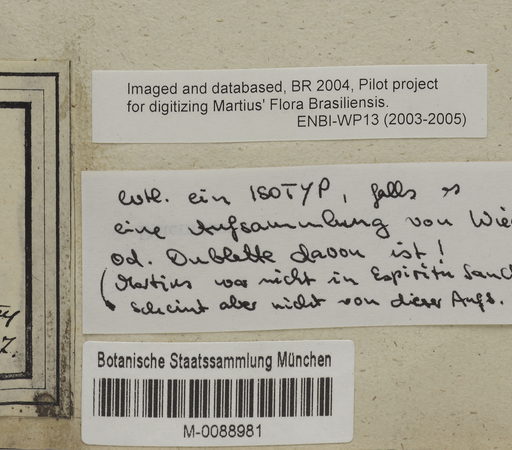 Imaged and databased, BR 2004, Pilot project
for digitizing Martius' Flora Brasiliensis.
ENBI-WP13 (2003-2005)
evtl. ein ISOTYP, falls es
eine Aufsammlung von Wie
od. Dublette davon ist!
(Martius war nicht in Espiritu Sanct
scheint aber nicht von dieser Aufs.
Botanische Staatssammlung München
M-0088981